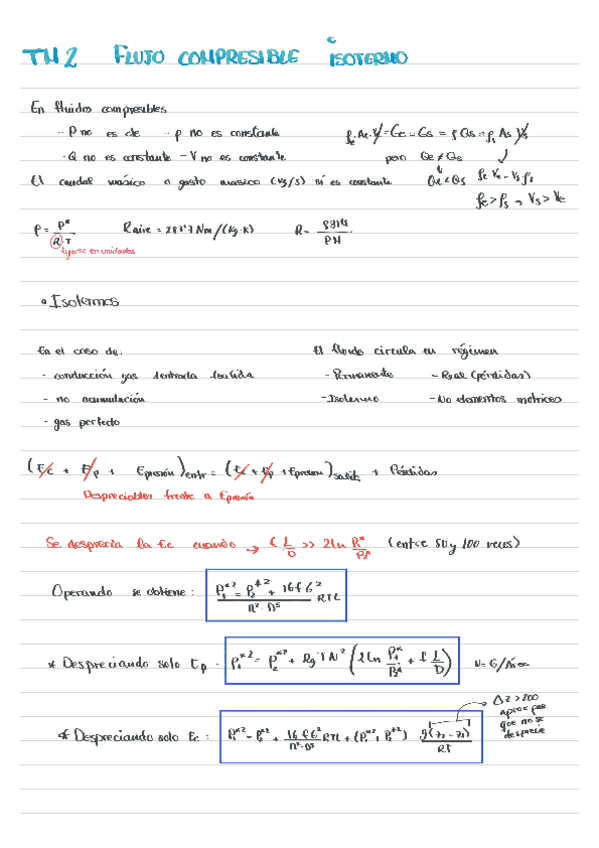 TM 2 FLUJO COMPRESIBLE ISOTERMO
En fluidos compresibles
- P no es cte - ρ no es constante
ρe·Ae·Ve = Ge = Gs = ρ Qs = ρs As Vs
- Q no es constante - V no es constante
pero Qe ≠ Qs
El caudal másico o gasto masico (kg/s) sí es constante
Qe < Qs ρe Ve = Vs ρs
ρe > ρs → Vs > Ve
ρ = P* / R T Raire = 287'7 Nm/(kg·K) R = 8314 / PM
fijarse en unidades
• Isotermos
En el caso de:
- conducción gas 1 entrada 1 salida
- no acumulación
- gas perfecto
El fluido circula en régimen
- Permanente - Real (pérdidas)
- Isotermo - No elementos motrices
(Ec + Ep + Epresión)entr = (Ec + Ep + Epresion)salida + Pérdidas
Despreciables frente a Epresión
Se desprecia la Ec cuando → f L/D >> 2 ln P1*/P2* (entre 50 y 100 veces)
Operando se obtiene: P1*² = P2*² + 16 f G² / π² · D⁵ RTL
* Despreciando solo Ep: P1*² = P2*² + Rg T N² (2 ln P1*/P2* + f L/D) N = G/
* Despreciando solo Ec: P1*² - P2*² + 16 f G² / π² · D⁵ RTL + (P1*² + P2*²) g(z2 - z1) / RT
Δz > 200
aprox para
que no se
desprecie